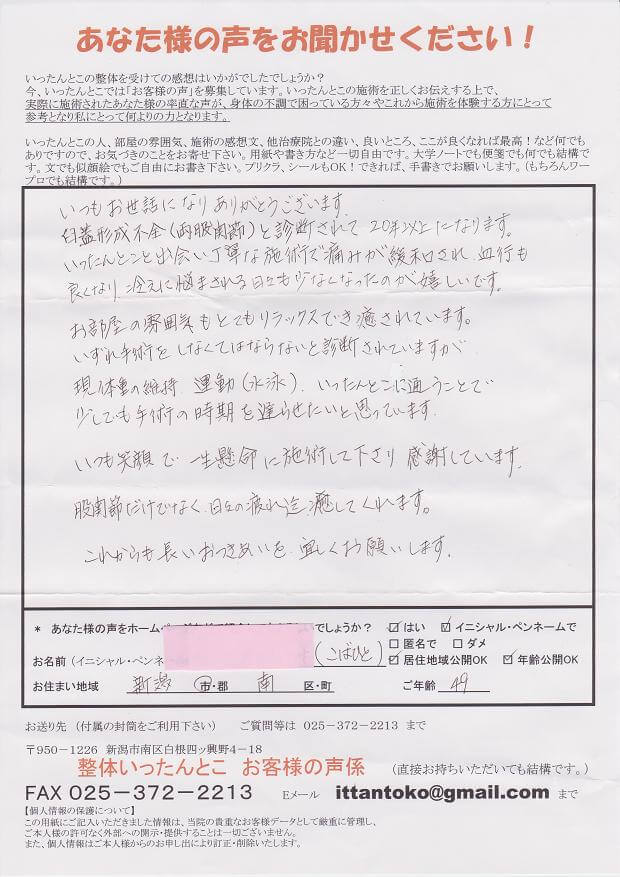 あなた様の声をお聞かせください！
いったんとこの整体を受けての感想はいかがでしたでしょうか？
今、いったんとこでは「お客様の声」を募集しています。いったんとこの施術を正しくお伝えする上で、
実際に施術されたあなた様の率直な声が、身体の不調で困っている方々やこれから施術を体験する方にとって
参考となり私にとって何よりの力となります。
いったんとこの人、部屋の雰囲気、施術の感想文、他治療院との違い、良いところ、ここが良くなれば最高！など何でも
ありですので、お気づきのことをお寄せ下さい。用紙や書き方など一切自由です。大学ノートでも便箋でも何でも結構で
す。文でも似顔絵でもご自由にお書き下さい。プリクラ、シールもOK！できれば、手書きでお願いします。（もちろんワー
プロでも結構です。）
いつもお世話になりありがとうございます。
臼蓋形成不全(両股関節)と診断されて20年以上になります。
いったんとこと出会い丁寧な施術で痛みが緩和され、血行も
良くなり冷えに悩まされる日々も少なくなったのが嬉しいです。
お部屋の雰囲気もとてもリラックスでき癒されています。
いずれ手術をしなくてはならないと診断されていますが
現体重の維持、運動(水泳)、いったんとこに通うことで
少しでも手術の時期を遅らせたいと思っています。
いつも笑顔で一生懸命に施術して下さり感謝しています。
股関節だけでなく、日々の疲れ迄癒してくれます。
これからも長いおつきあいを宜しくお願いします。
＊ あなた様の声をホームページなどで紹介してもよろしいでしょうか？ ☑はい ☑イニシャル・ペンネームで
□匿名で □ダメ
お名前（イニシャル・ペンネー (こばひと) ☑居住地域公開OK ☑年齢公開OK
お住まい地域 新潟 市・郡 南 区・町 ご年齢 49
お送り先 （付属の封筒をご利用下さい） ご質問等は 025－372－2213 まで
〒950－1226 新潟市南区白根四ッ興野4－18
整体いったんとこ お客様の声係 （直接お持ちいただいても結構です。）
FAX 025－372－2213 Eメール ittantoko@gmail.com まで
【個人情報の保護について】
この用紙にご記入いただきました情報は、当院の貴重なお客様データとして厳重に管理し、
ご本人様の許可なく外部への開示・提供することは一切ございません。
また、個人情報はご本人様からのお申し出により訂正・削除いたします。